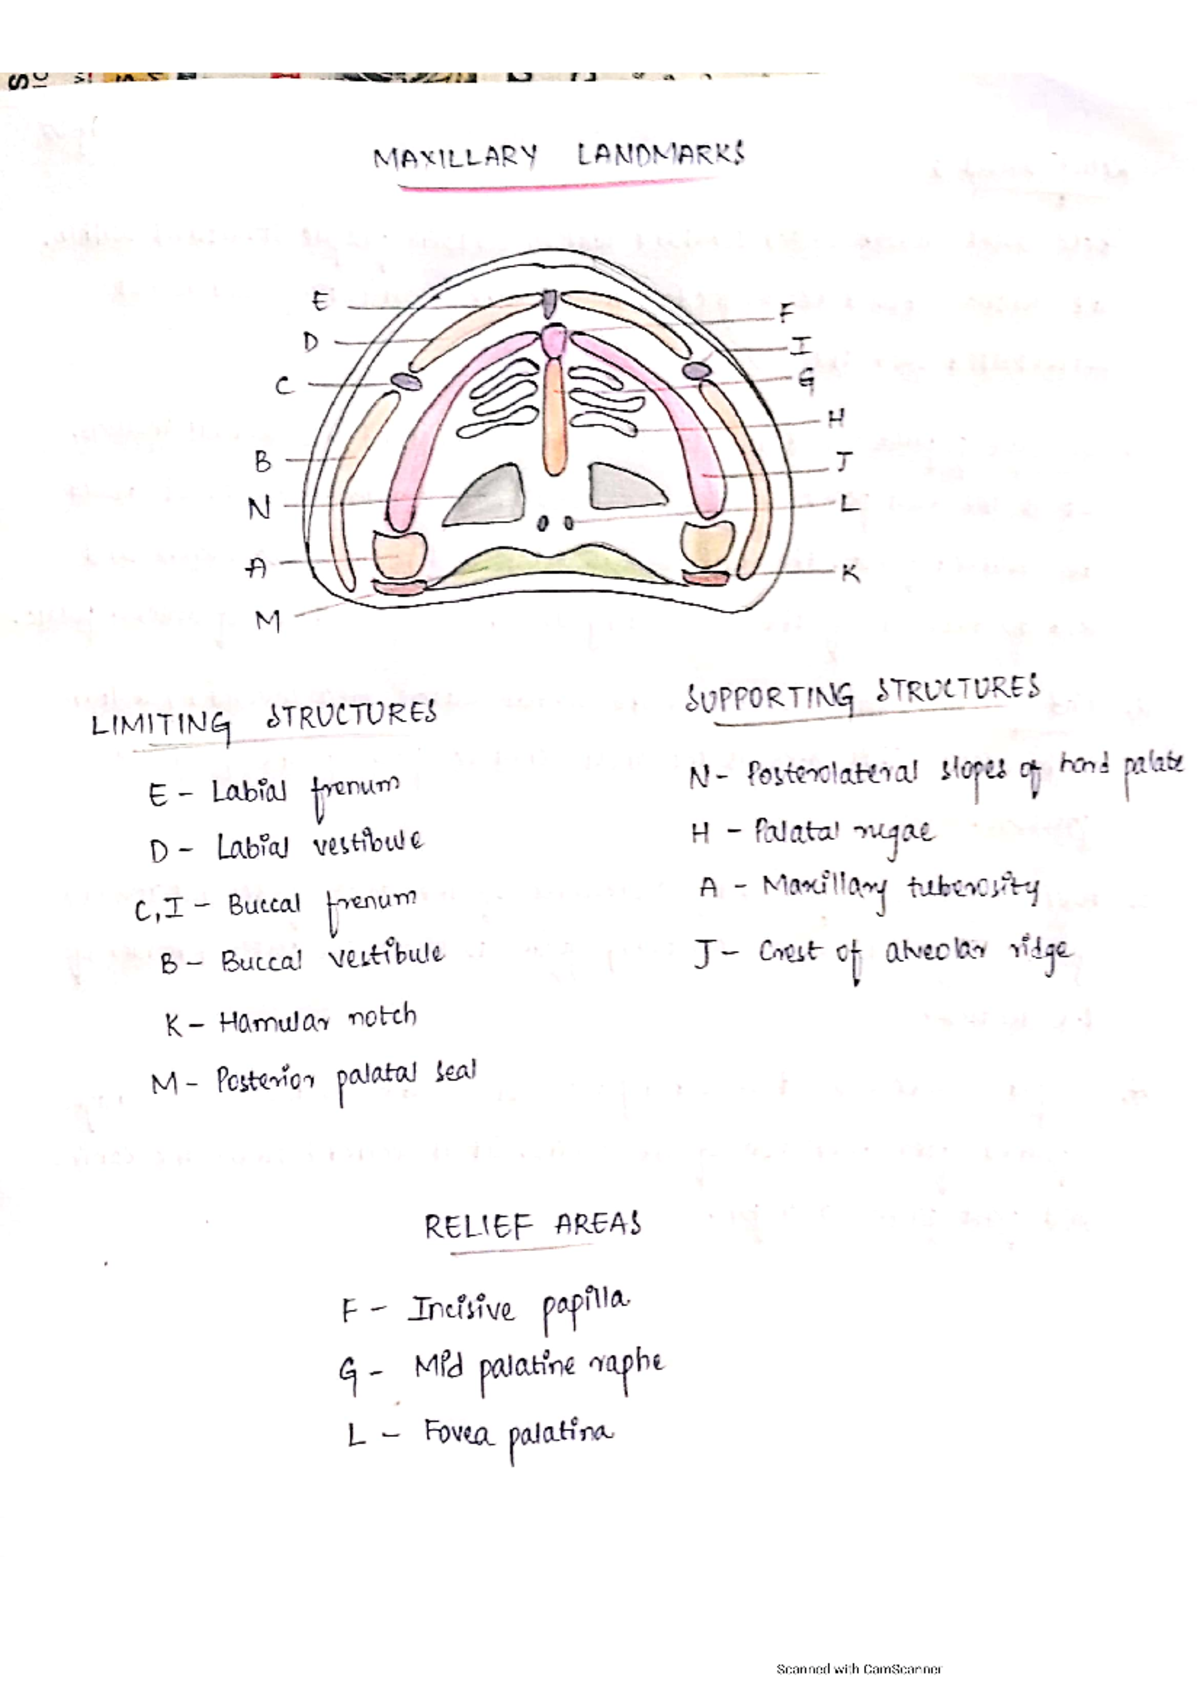 MAXILLARY LANDMARKS
E
F
D
I
C
G
H
B
J
N
L
A
K
M
LIMITING STRUCTURES
E - Labial frenum
D - Labial vestibule
C, I - Buccal frenum
B - Buccal vestibule
K - Hamular notch
M - Posterior palatal seal
SUPPORTING STRUCTURES
N - Posterolateral slopes of hard palate
H - Palatal rugae
A - Maxillary tuberosity
J - Crest of alveolar ridge
RELIEF AREAS
F - Incisive papilla
G - Mid palatine raphe
L - Fovea palatina
Scanned with CamScanner